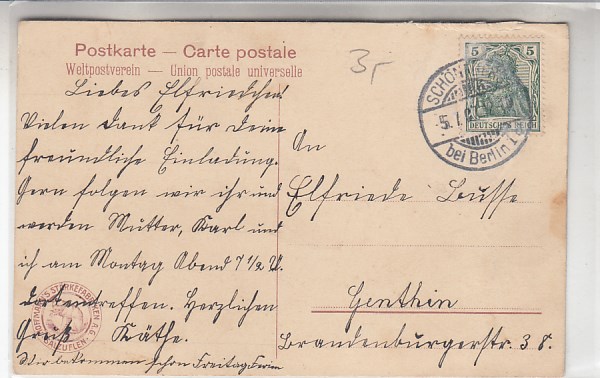 Postkarte — Carte postale
Weltpostverein — Union postale universelle
Liebes Elfriedchen!
Vielen Dank für Deine
freundliche Einladung.
Gern folgen wir ihr und
werden Mutter, Karl und
ich am Montag Abend 7 1/2 U.
dort eintreffen. Herzlichen
Gruß Käthe.
Wir bekommen schon Freitag Ferien
3,-
5 5
DEUTSCHES REICH
bei Berlin
An
Elfriede Busse
Genthin
Brandenburgerstr. 38.
HOFFMANN'S STÄRKEFABRIKEN A.G.
SALZUFLEN